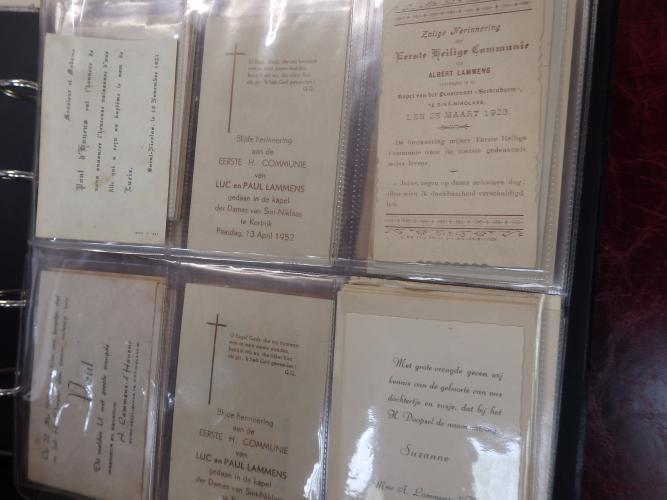 Monsieur et Madame
Paul d'Havens ont l'honneur de
vous annoncer l'heureuse naissance d'une
fille qui a reçu au baptême le nom de
Saint-Nicolas, le 15 Novembre 1921.
O Jesu! Gods, die mij bemint
Blijde herinnering
aan de
EERSTE H. COMMUNIE
van
LUC en PAUL LAMMENS
gedaan in de kapel
der Dames van Sint-Niklaas
te Kortrijk
Paasdag, 13 April 1952
Zalige Herinnering
der
Eerste Heilige Communie
van
ALBERT LAMMENS
Kapel van het Pensionaat «Berkenboom»
TE SINT-NIKOLAAS,
DEN 25 MAART 1923.
De herinnering mijner Eerste Heilige
Communie ware de zoetste gedenkenis
mijns levens.
o Jezus, zegen op dezen schoonen dag,
alles wien ik dankbaarheid verschuldigd
ben.
Paul
De melden U met groote vreugde
A. Lammens-d'Havens
Blijde herinnering
aan de
EERSTE H. COMMUNIE
van
LUC en PAUL LAMMENS
gedaan in de kapel
der Dames van Sint-Niklaas
Met grote vreugde geven wij
kennis van de geboorte van ons
dochtertje en zusje, dat bij het
H. Doopsel de naam
Suzanne
Mme A. Lammens